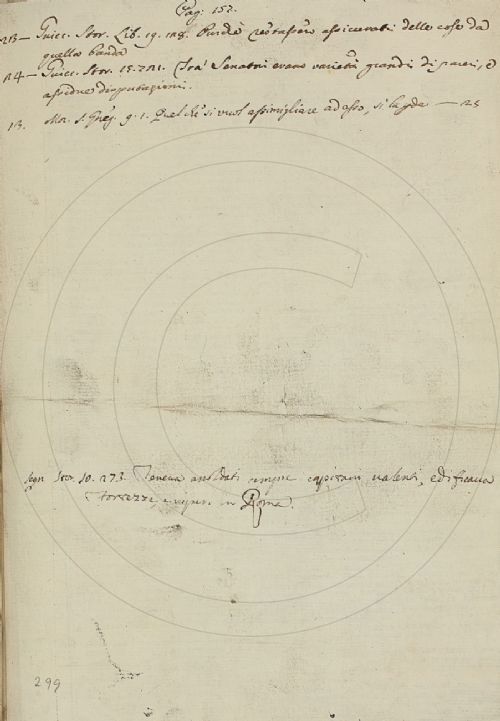 Pag. 153.
213 — Guicc. Stor. Lib. 19. 118. restassero assicurati delle cose da
quella banda
114 — Guicc. Stor. 15. 721. Tra' Senatori erano varietà grandi di pareri, e
assidue disputazioni.
Mor. S. Greg. 9. 1. Quel che si vuol assimigliare ad esso, si leg
Segn. Stor. 10. 273. Teneva soldati capitani valenti, edificava
fortezze, in Roma.
299